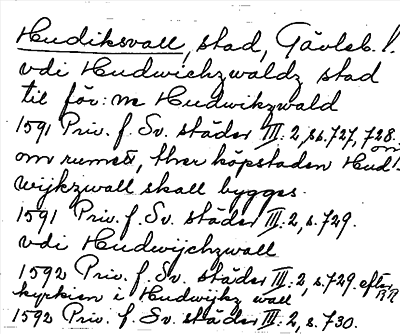 Hudiksvall, stad, Gävleb. l.
vdi Hudwichzwaldz stad
til för: ne Hudwikzwald
1591 Priv. f. Sv. städer III: 2, ss. 727, 728.
om rumet, ther köpstaden Hud-
wijkzwall skall bygges.
1591 Priv. f. Sv. städer III: 2, s. 729.
vdi Hudwijchzwall
1592 Priv. f. Sv. städer III: 2, s. 729. efter
kyrkien i Hudwijkz wall
1592 Priv. f. Sv. städer III: 2, s. 730.